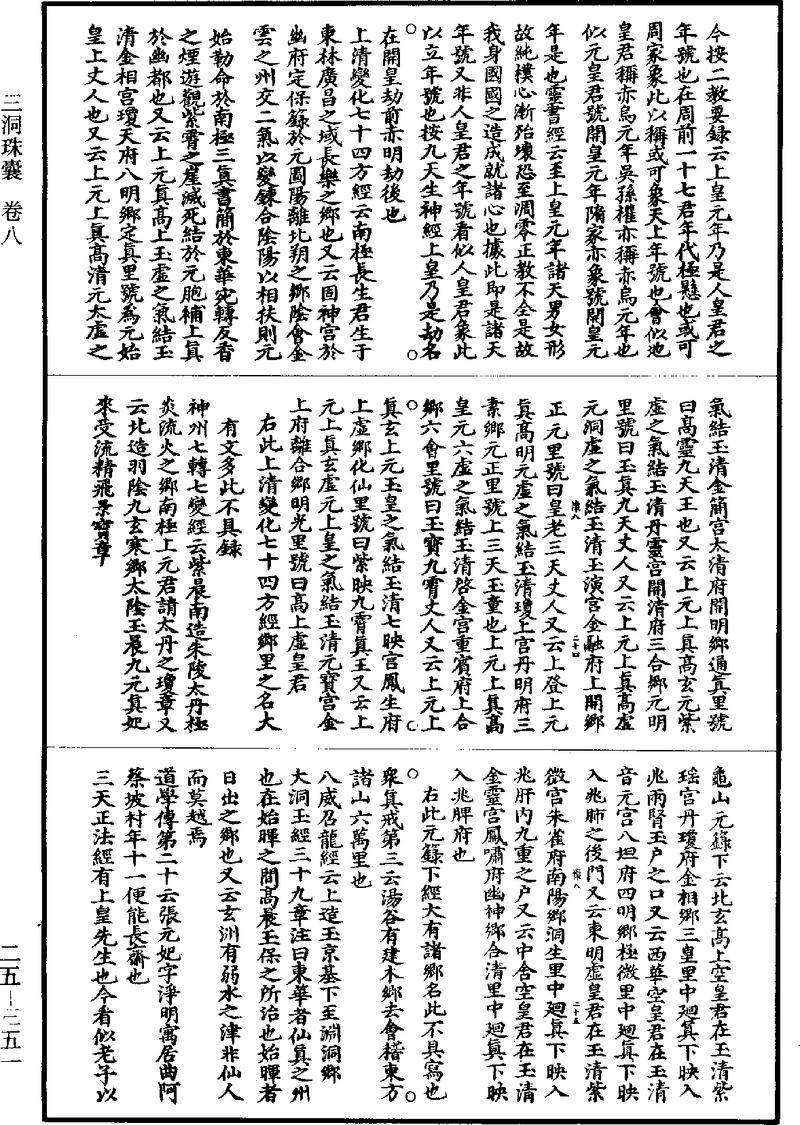 今按二教要録云上皇元年乃是人皇君之
年號也在周前一十七君年代極懸也或可
周家象此以稱或可象天上年號也會似池
皇君稱赤烏元年吳孫權亦稱赤烏元年也
似元皇君號開皇元年隋家亦象號開皇元
年是也靈書經云至上皇元年諸天男女形
故純樸心漸殆壞恐至凋零正教不全是故
我身國國之造成就諸心也據此即是諸天
年號又非人皇君之年號看似人皇君象此
以立年號也按九天生神經上皇乃是劫名
在開皇劫前赤明劫後也
上清變化七十四方經云南極長生君生于
東林廣昌之域長樂之鄉也又云固神宫於
幽府定保籙於元圖陽離北朔之鄉陰會金
雲之州交二氣以變鍊合陰陽以相扶則元
始勑命於南極三真書簡於東華宛轉反香
之煙遊觀紫霄之崖滅死結於元胞補上真
於幽都也又云上元真高上玉虛之氣結玉
清金相宫瓊天府八明鄉定真里號爲元始
皇上丈人也又云上元上真高清元太虛之
氣結玉清金簡宫太清府開明鄉通真里號
曰高靈九天王也又云上元上真高玄元紫
虛之氣結玉清丹靈宫開清府三合鄉元明
里號曰玉真九天丈人又云上元上真高虛
元洞虛之氣結玉清玉演宫金融府上開鄉
正元里號曰皇老三天丈人又云上登上元
真高明元虛之氣結玉清瓊上宫丹明府三
素鄉元正里號上三天玉童也上元上真高
皇元六虛之氣結玉清啓金宫重賓府上合
鄉六會里號曰玉寳九霄丈人又云上元上
真玄上元玉皇之氣結玉清七映宫鳳生府
上虛鄉化仙里號曰紫映九霄真王又云上
元上真玄虛元上皇之氣結玉清元寳宫金
上府離合鄉明光里號曰高上虛皇君
右此上清變化七十四方經鄉里之名大
有文多此不具録
神州七轉七變經云紫晨南造朱陵太丹極
炎流火之鄉南極上元君請太丹之瓊章又
云北造羽陰九玄寒鄉太陰玉晨九元真妃
來受流精飛景寳章
龜山元籙下云北玄高上空皇君在玉清紫
瑶宫丹瓊府金相鄉三皇里中迴真下映入
兆兩腎玉户之口又云西華空皇君在玉清
音元宫八坦府四明鄉極微里中迴真下映
入兆肺之後門又云東明虛皇君在玉清紫
微宫朱雀府南陽鄉洞生里中迴真下映入
兆肝内九重之户又云中舍空皇君在玉清
金靈宫鳳嘯府幽神鄉合清里中迴真下映
入兆脾府也
右此元籙下經大有諸鄉名此不具寫也
衆真戒第三云湯谷有建木鄉去會稽東方
諸山六萬里也
八威召龍經云上造玉京基下至淵洞鄉
大洞玉經三十九章注曰東華者仙真之州
也在始暉之間高晨玉保之所治也始暉者
日出之鄉也又云玄洲有弱水之津非仙人
而莫越焉
道學傳第二十云張元妃字淨明寓居曲阿
蔡坡村年十一便能長齋也
三天正法經有上皇先生也今看似老子以
三洞珠囊 卷八
二五—三五一